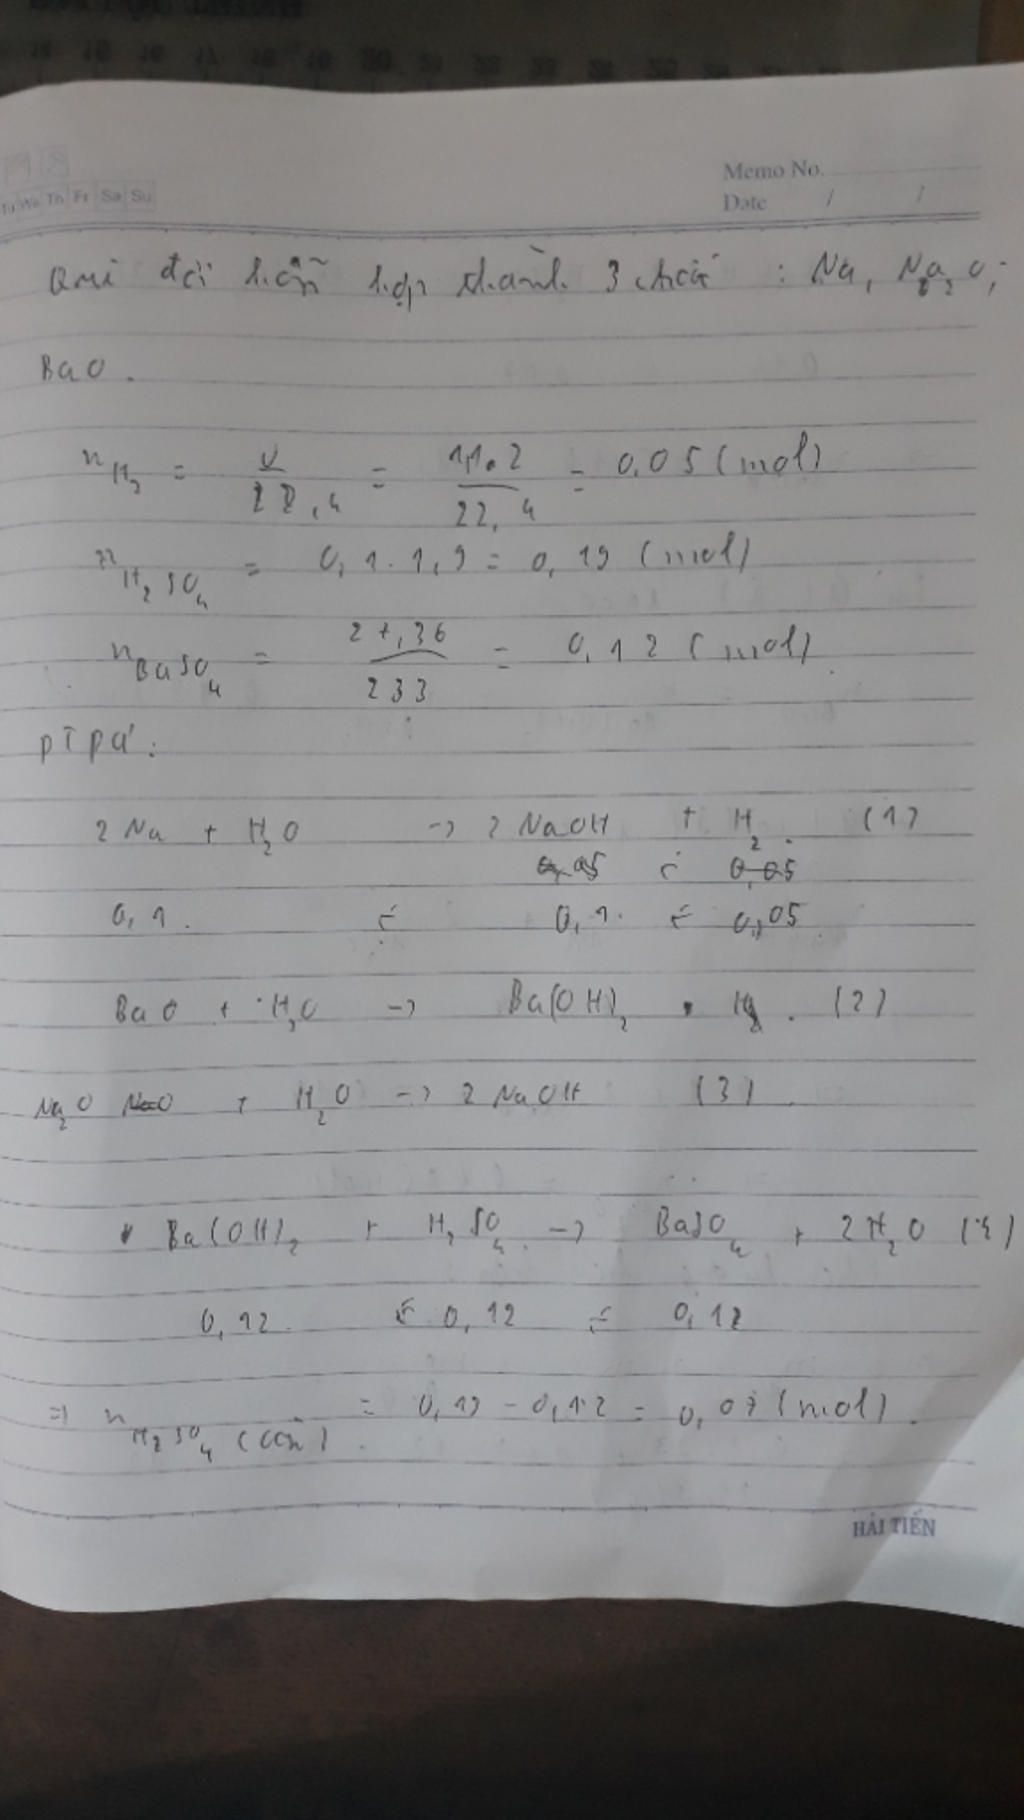 Tu We Th Fr Sa Su
Memo No.
Date / /
Qui đổi hỗn hợp thành 3 chất : Na, Na2O,
BaO.
nH2 = V/22,4 = 1,1.2/22,4 = 0,05 (mol)
nH2SO4 = 0,1.1,9 = 0,19 (mol)
nBaSO4 = 27,36/233 = 0,12 (mol)
PTPƯ:
2Na + H2O -> 2NaOH + H2. (1)
0,05 ← 0,05
0,1. ← 0,1. ← 0,05
BaO + H2O -> Ba(OH)2 . (2)
Na2O + H2O -> 2NaOH (3)
Ba(OH)2 + H2SO4 -> BaSO4 + 2H2O (4)
0,12 ← 0,12 ← 0,12
=> nH2SO4 (còn) = 0,19 - 0,12 = 0,07 (mol).
HẢI TIẾN